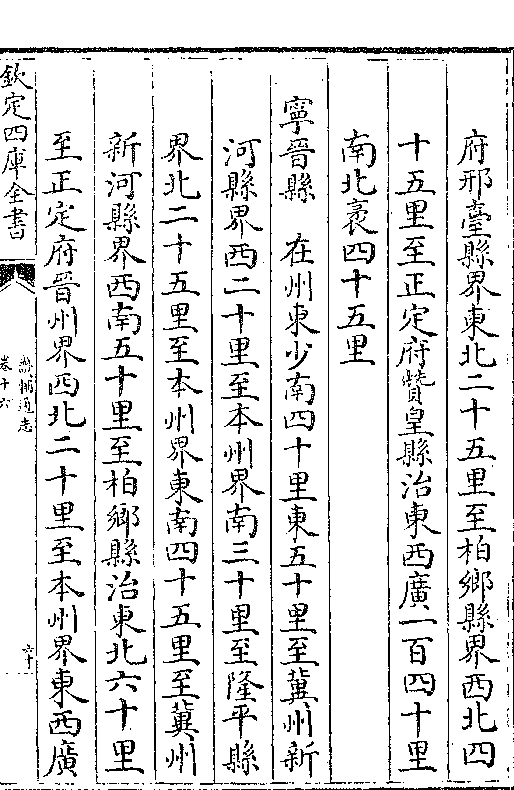 府邢臺縣界東北二十五里至柏鄉縣界西北四
十五里至正定府贊皇縣治東西廣一百四十里
南北袤四十五里
寧晉縣　在州東少南四十里東五十里至冀州新
河縣界西二十里至本州界南三十里至隆平縣
界北二十五里至本州界東南四十五里至冀州
新河縣界西南五十里至柏鄉縣治東北六十里
至正定府晉州界西北二十里至本州界東西廣
欽定四庫全書
畿輔通志
卷十六
六十